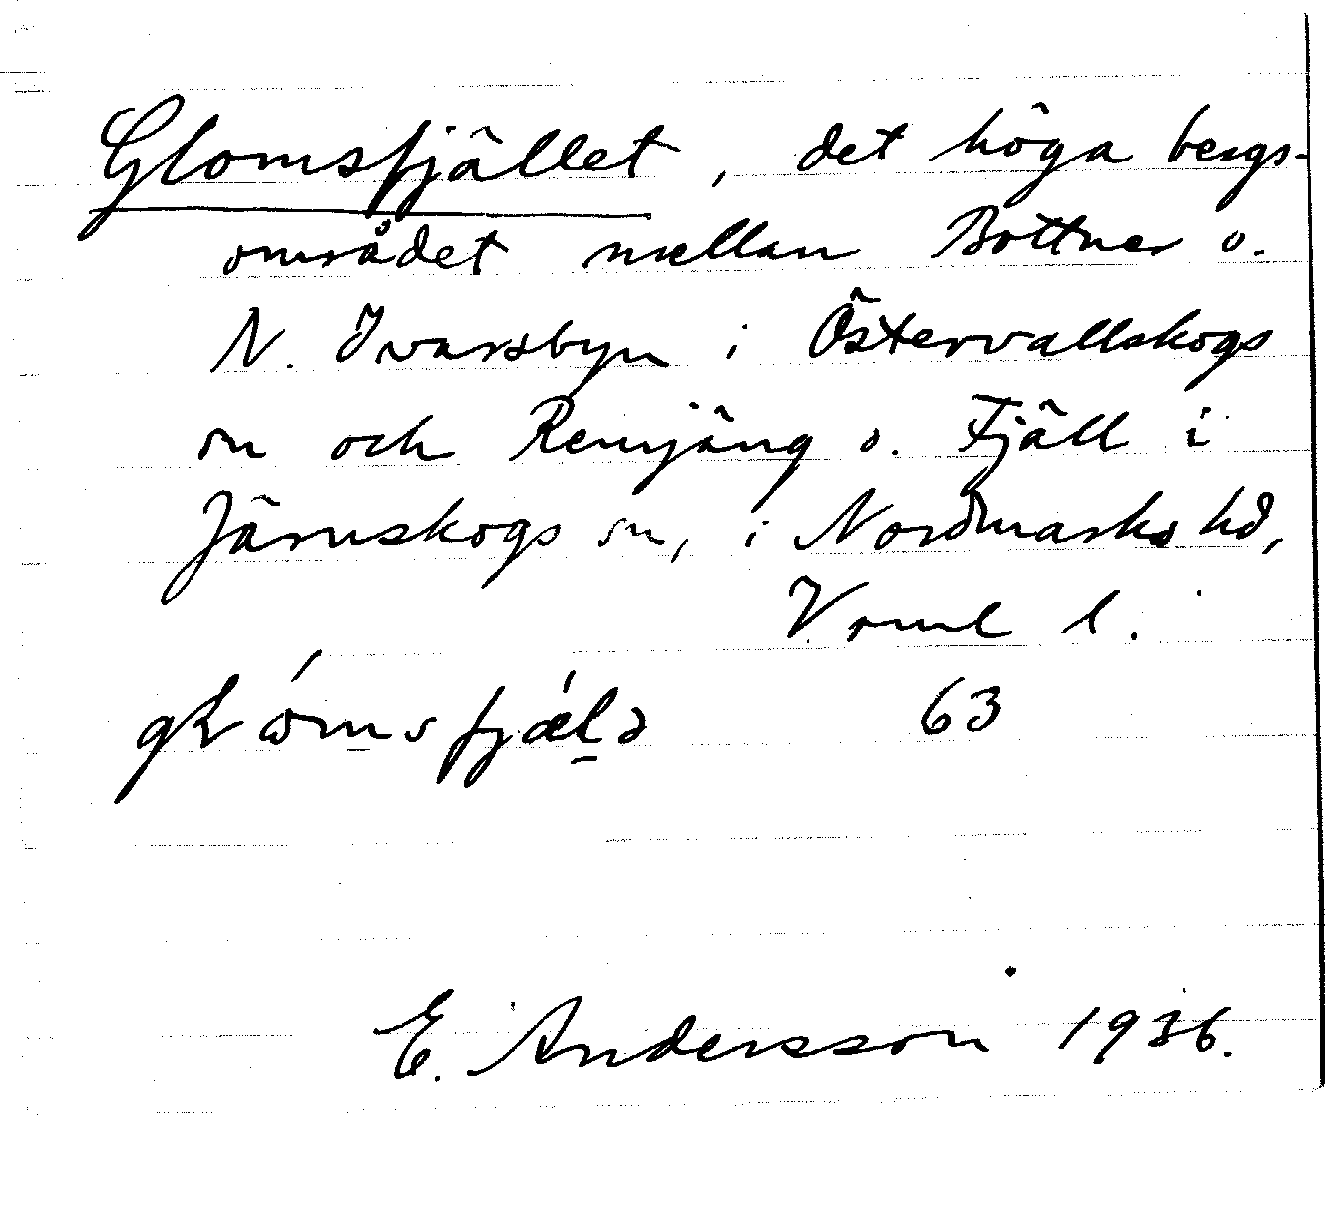 Glomsfjället, det höga bergs-
området mellan Bottner o.
N. Ivarsbyn i Östervallskogs
sn och Remjäng o. Fjäll i
Järnskogs sn, i Nordmarks hd,
Vrml l.
63
E. Andersson 1936.